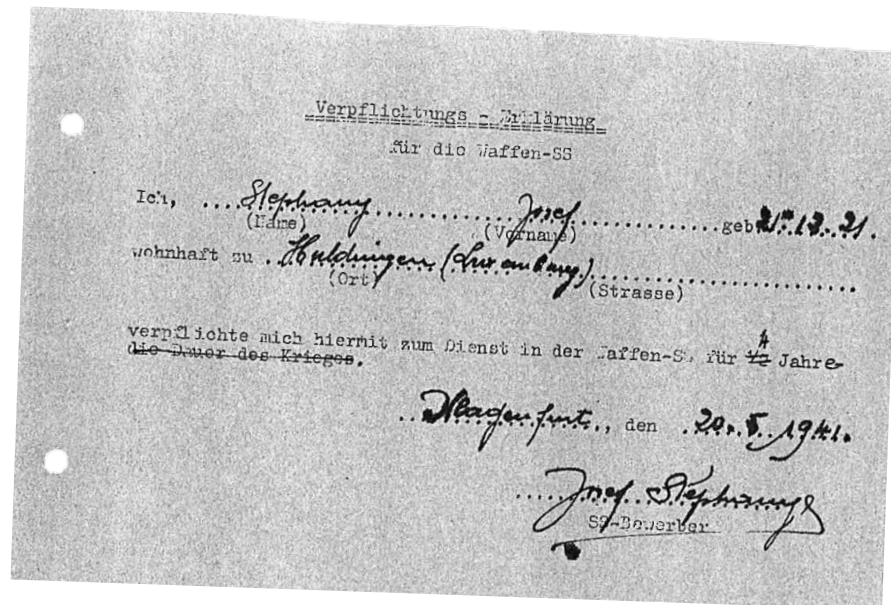 Verpflichtungs - Erklärung
für die Waffen-SS
Ich, Stephany Josef geb. 21.12.21.
(Name) (Vorname)
wohnhaft zu Huldingen (Luxemburg)
(Ort) (Strasse)
verpflichte mich hiermit zum Dienst in der Waffen-SS für 4 Jahre
die Dauer des Krieges.
Klagenfurt, den 20. 5. 1941.
Josef Stephany
SS-Bewerber